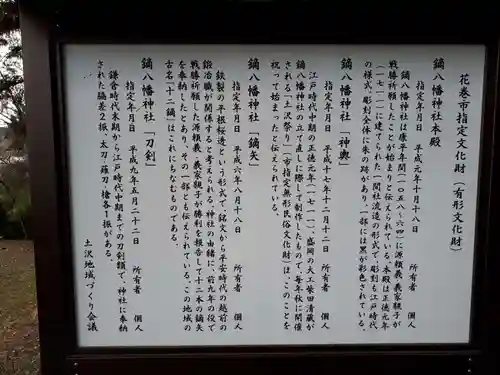 花巻市指定文化財（有形文化財）
鏑八幡神社本殿
指定年月日　平成元年十月十八日　所有者　個人
鏑八幡神社は康平年間（一〇五八～六四）に源頼義、義家親子が
戦勝祈願したことが始まりと伝えられている。本殿は正徳元年
（一七一一）に建てられた一間社流造の形式で、彫刻も江戸時代
の様式。彫刻全体に朱の跡があり、一部には黒が彩色されている。
鏑八幡神社「神輿」
指定年月日　平成十七年十二月二十八日　所有者　個人
江戸時代中期の正徳元年（一七一一）、盛岡の大工柴田清蔵が
鏑八幡神社の立て直しに際して制作したもので、毎年秋に開催
される「土沢祭り」（市指定無形民俗文化財）は、このことを
祝って始まったと伝えられている。
鏑八幡神社「鏑矢」
指定年月日　平成六年八月十八日　所有者　個人
鉄製の平根桜透という形式で、銘文から平安時代の越前の
鍛冶職が関係すると考えられる。神社の由緒に、前九年の役で
戦勝祈願した源頼義、義家親子が勝利を報告して十二本の鏑矢
を奉納したとあり、その一部とも伝えられている。この地域の
古名「十二鏑」はこれにちなむものである。
鏑八幡神社「刀剣」
指定年月日　平成九年五月二十二日　所有者　個人
鎌倉時代末期から江戸時代中期までの刀剣類で、神社に奉納
された脇差２振、太刀・薙刀・槍各１振がある。
土沢地域づくり会議